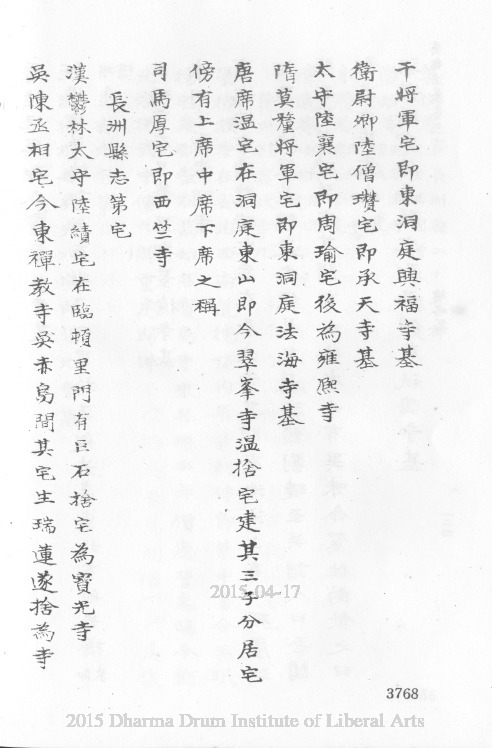 干將軍宅即東洞庭興福寺基
衛尉卿陸僧瓚宅即承天寺基
太守陸襄宅即周瑜宅後為雍熙寺
隋莫釐將軍宅即東洞庭法海寺基
唐席温宅在洞庭東山即今翠峯寺温捨宅建其三子分居宅
傍有上席中席下席之稱
司馬厚宅即西竺寺
長洲縣志第宅
漢鬱林太守陸績宅在臨頓里門有巨石捨宅為寳光寺
吳陳丞相宅今東禪教寺吳赤烏間其宅生瑞蓮遂捨為寺
2015-04-17
3768
2015 Dharma Drum Institute of Liberal Arts